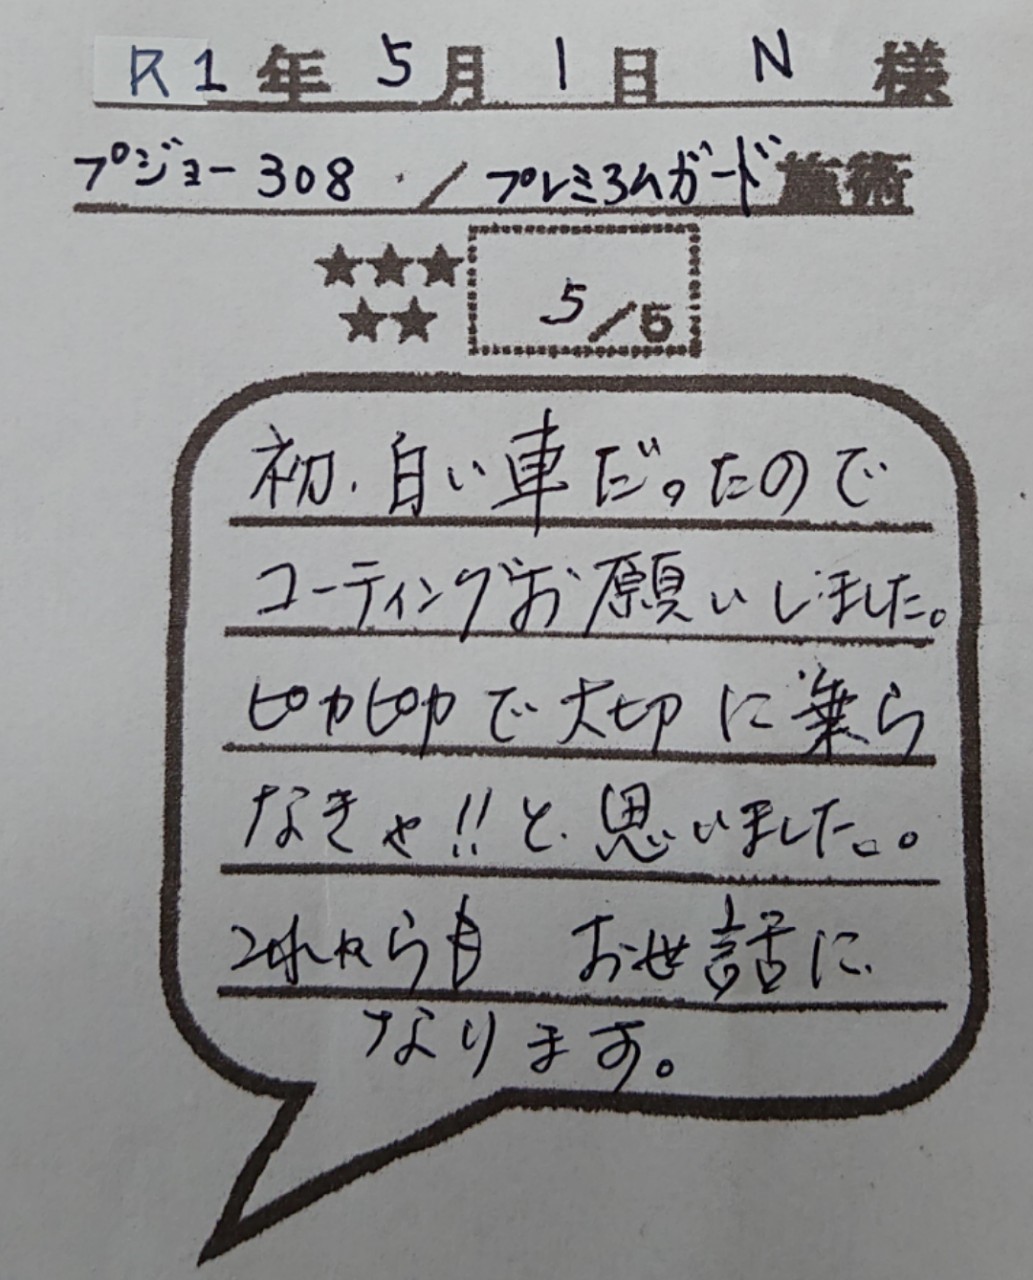 R1年 5月 1日 N 様
プジョー308 / プレミアムガード 施術
★★★
★★ 5/5
初.白い車だったので
コーティングお願いしました。
ピカピカで大切に乗ら
なきゃ!!と思いました。
これからも お世話に
なります。